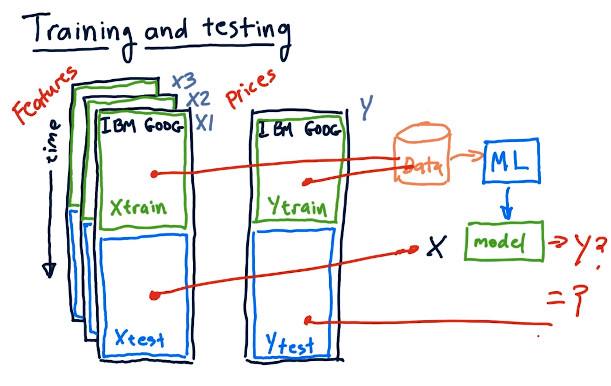 Training and testing
Features
time
X3
X2
X1
IBM GOOG
Xtrain
Xtest
Prices
Y
IBM GOOG
Ytrain
Ytest
Data
ML
X
model
Y?
= ?